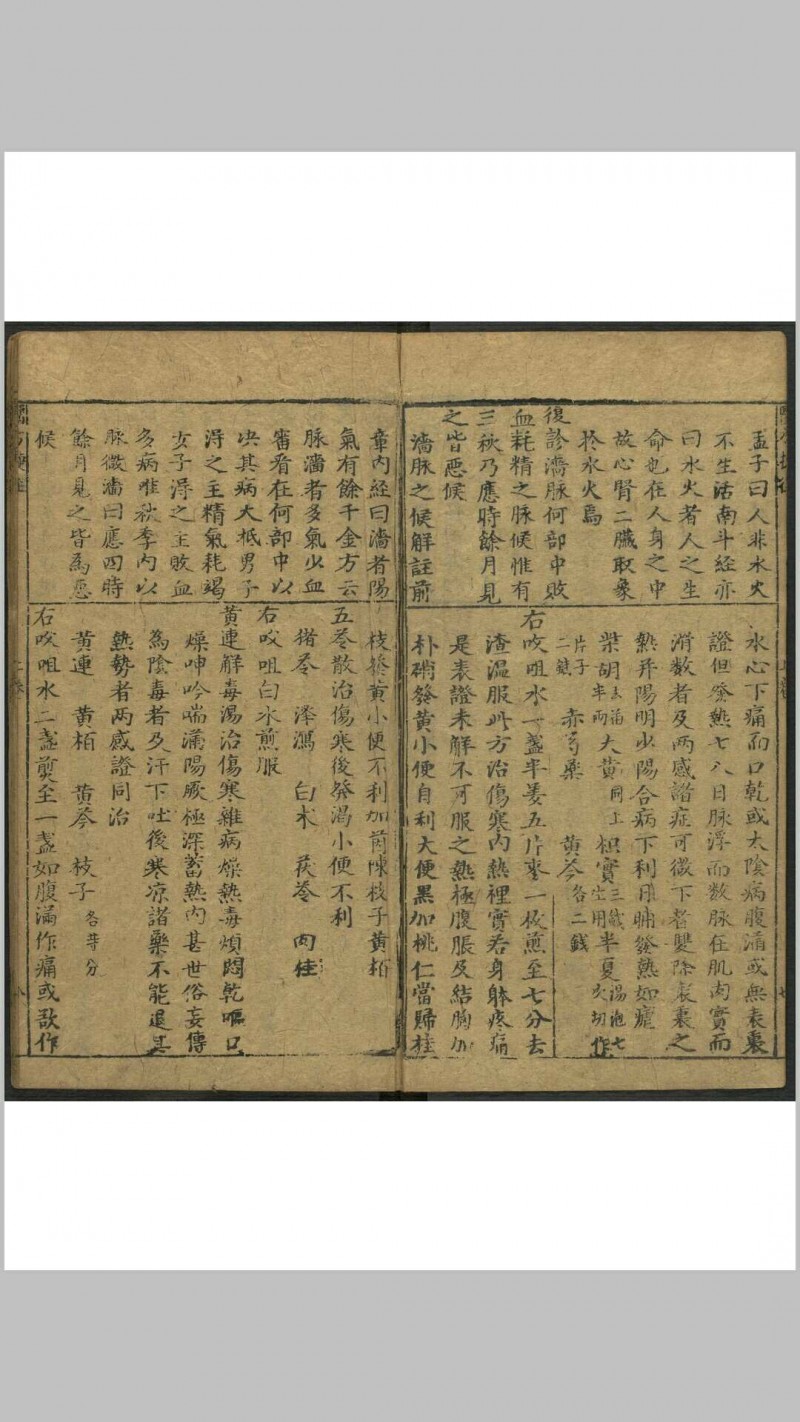 孟子曰人非水火
不生活南斗經亦
曰水火者人之生
命也在人身之中
故心腎二臟取象
於水火焉
後診濇脉何部中敗
血耗精之脉候惟有
三秋乃應時餘月見
之皆惡候
濇脉之候解註前
水心下痛而口乾或太陰病腹滿或無表裏
證但發熱七八日脉浮而數脉在肌肉實而
滑數者及兩感諸症可微下者雙除表裏之
熱并陽明少陽合病下利日晡發熱如瘧
柴胡去泊半兩 大黃同上 枳實三錢生用 半夏湯泡七次切作
片子二錢 赤芍藥 黃芩各二錢
右㕮咀水一盞半姜五片枣一枚煎至七分去
渣温服此方治傷寒内熱裡實若身躰疼痛
是表證未解不可服之熱極腹脹及結胸加
朴硝發黃小便自利大便黑加桃仁當歸桂
章内經曰濇者陽
氣有餘千金方云
脉濇者多氣少血
審看在何部中以
决其病大抵男子
淂之主精氣耗竭
女子淂之主敗血
多病惟秋季内以
脉微濇曰應四時
餘月見之皆為惡
候
枝發黃小便不利加茵陳枝子黃栢
五苓散治傷寒後發渴小便不利
猪苓 澤瀉 白术 茯苓 肉桂
右㕮咀白水煎服
黃連解毒湯治傷寒雜病燥熱毒煩悶乾嘔口
燥呻吟喘滿陽厥極深蓄熱内甚世俗妄傳
為陰毒者及汗下吐後寒凉諸藥不能退其
熱勢者两感證同治
黃連 黃栢 黃芩 枝子各等分
右㕮咀水二盞煎至一盞如腹滿作痛或欬作